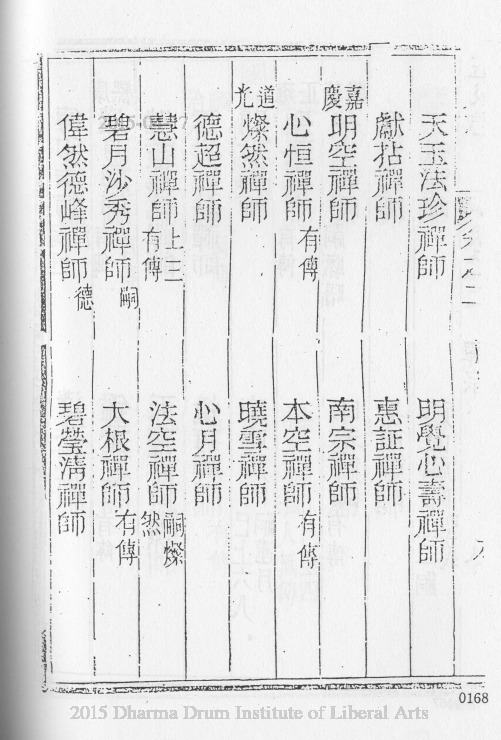 天玉法珍禪師 明覺心壽禪師
獻拈禪師 惠証禪師
嘉慶 明空禪師 南宗禪師
心恒禪師 有傳 本空禪師 有傳
道光 燦然禪師 曉雪禪師
德超禪師 心月禪師
慧山禪師 上二有傳 法空禪師 嗣燦然
碧月沙秀禪師 嗣 大根禪師 有傳
偉然德峰禪師 德 碧瑩清禪師
0168
2015 Dharma Drum Institute of Liberal Arts